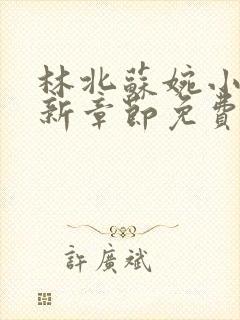 林北蘇婉小
新章節免費
許廣斌